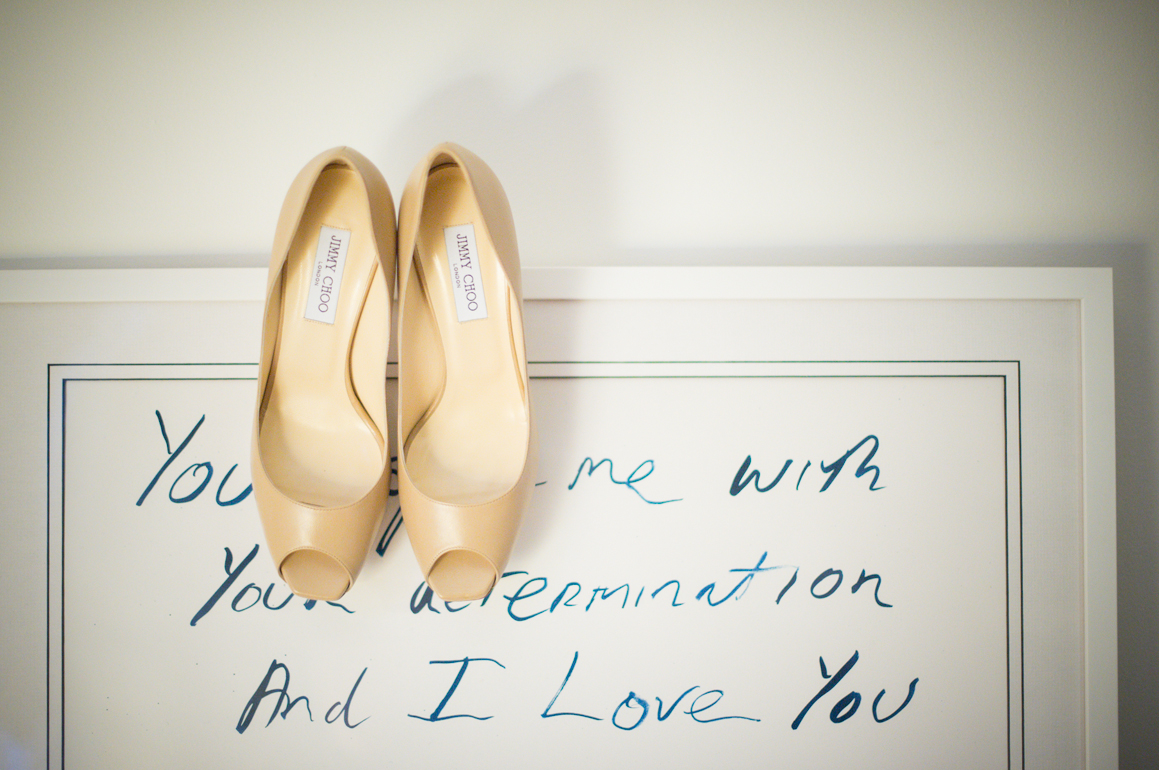 JIMMY CHOO
LONDON
JIMMY CHOO
LONDON
You me with
Your determination
And I Love You